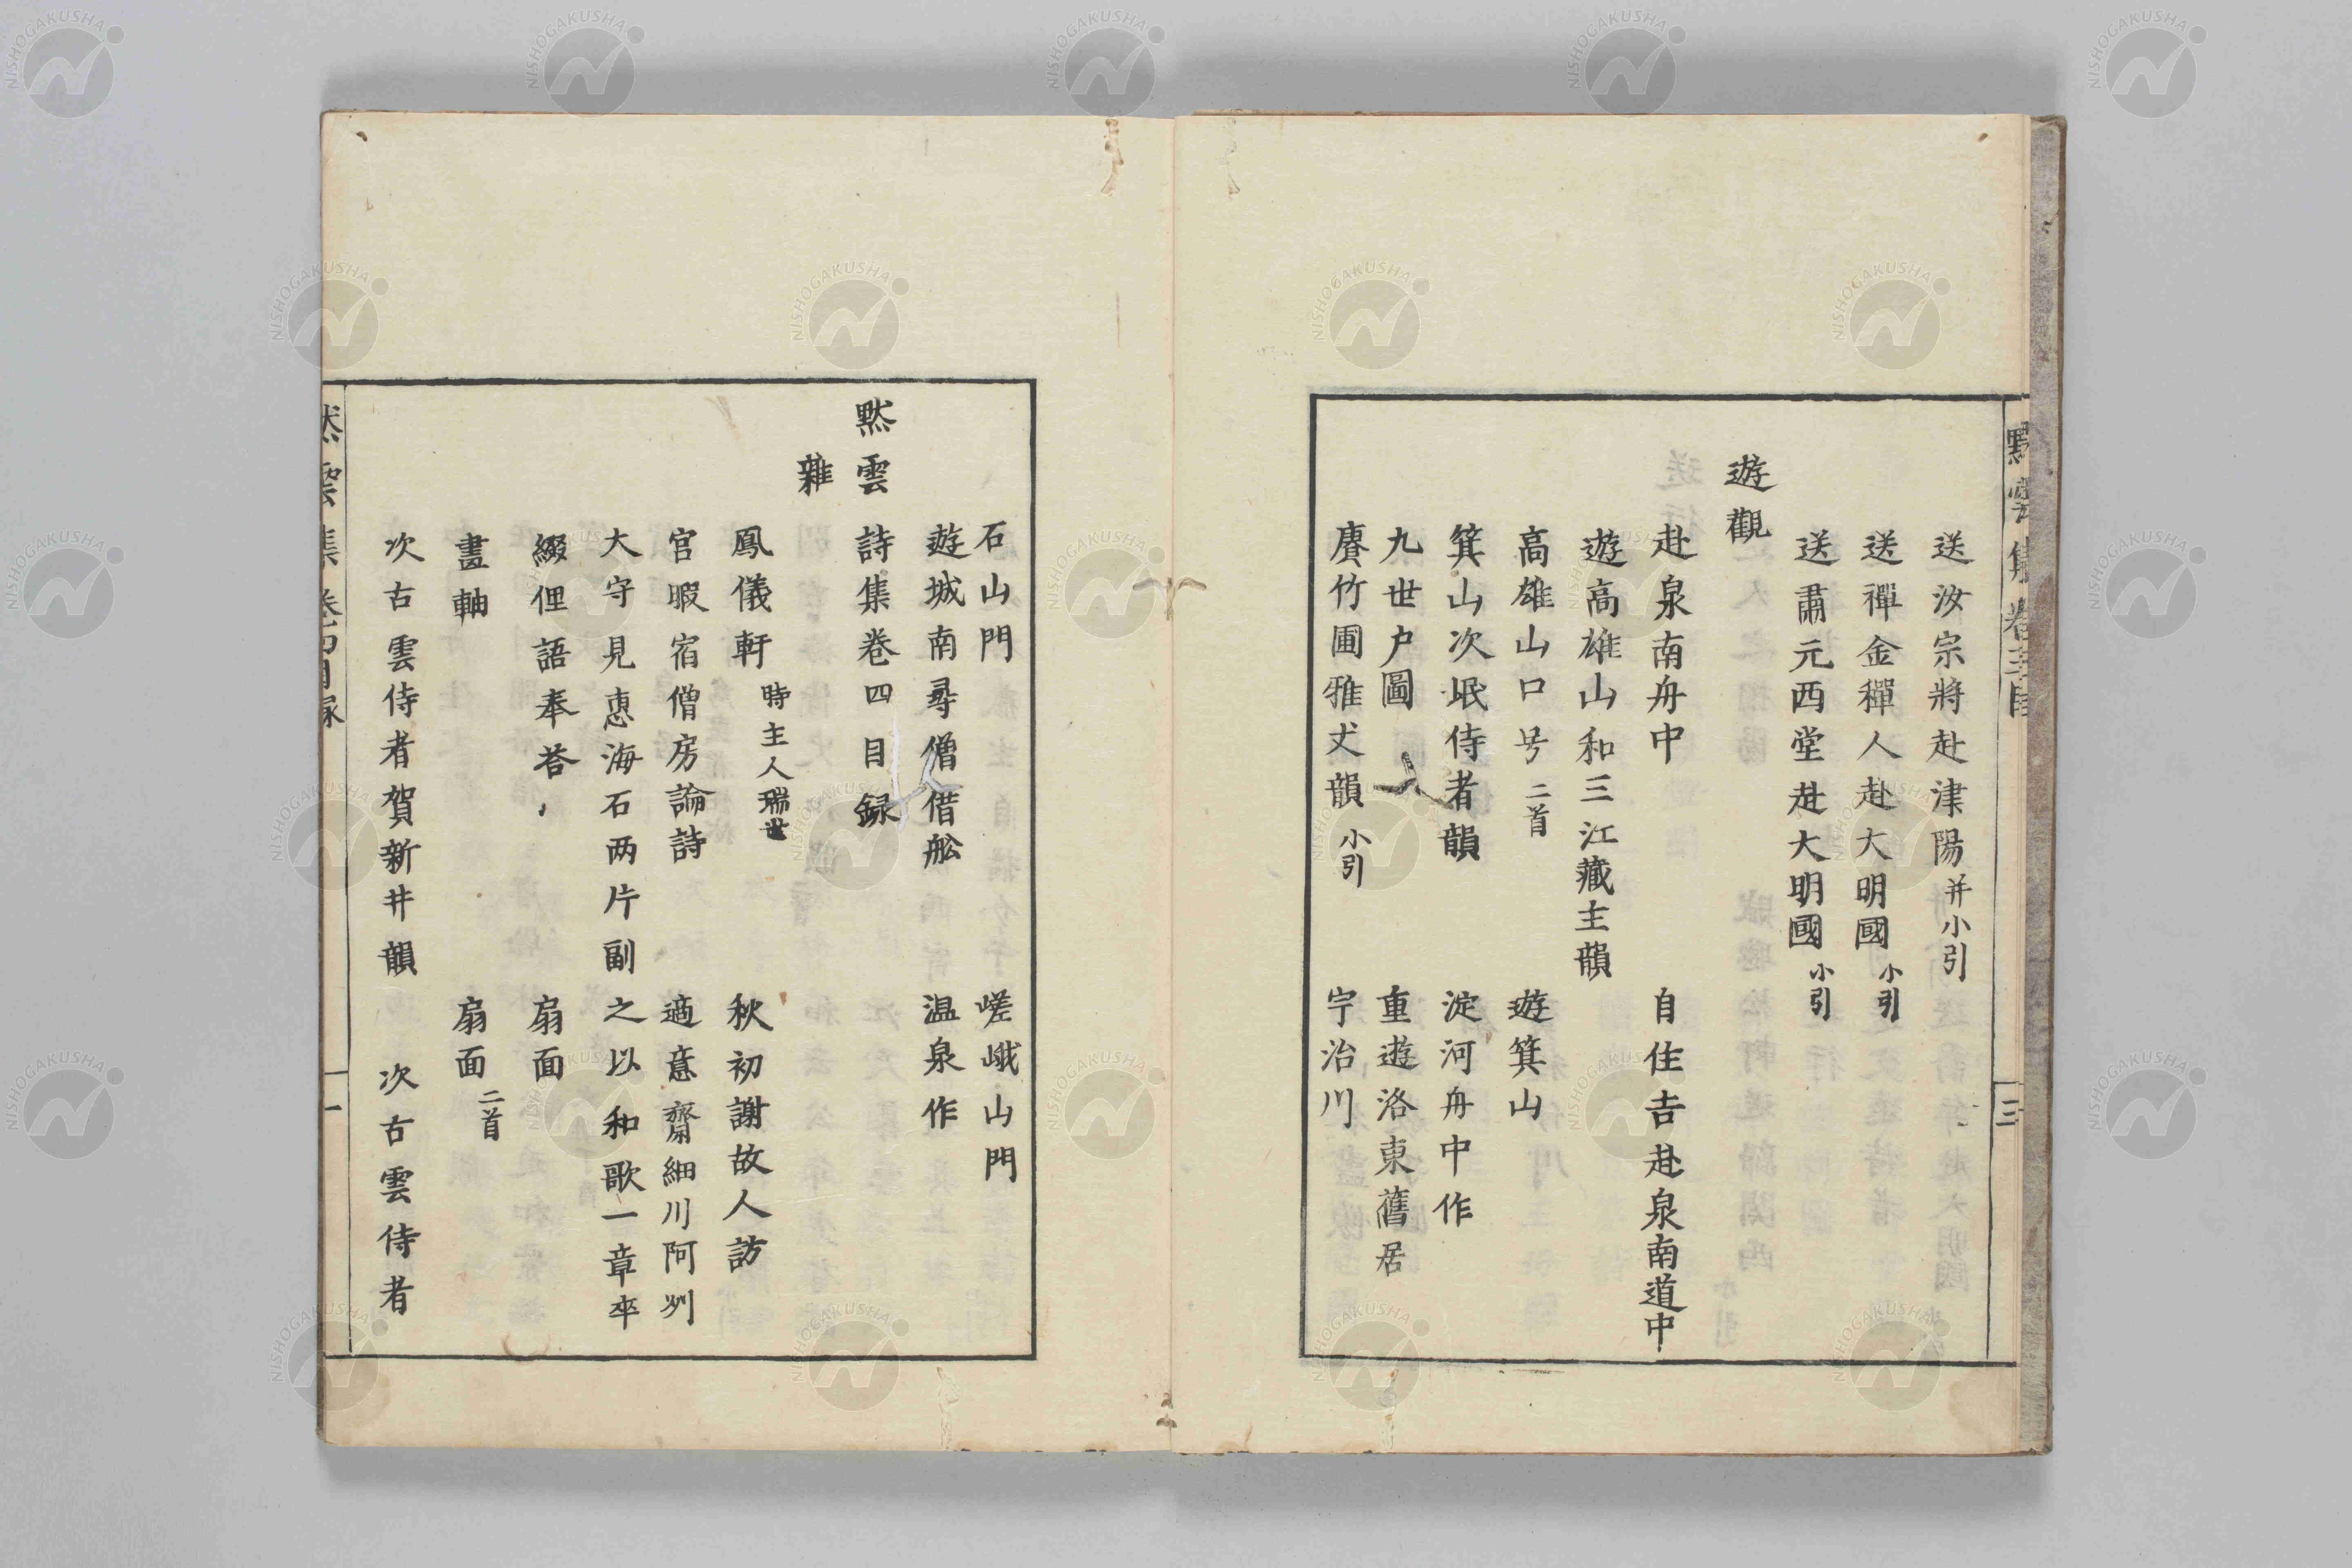 送汝宗將赴津陽并小引
送禪金穉人赴大明國小引
送肅元西堂赴大明國小引
遊觀
赴泉南舟中 自住吉赴泉南道中
遊高雄山和三江藏主韻
高雄山口号二首 遊箕山
箕山次岷侍者韻 淀河舟中作
九世户圖 重遊洛東舊居
賡竹圃雅丈韻小引 宇治川
石山門 嵯峨山門
遊城南尋僧借舩 温泉作
黙雲詩集卷四目録
雜
鳳儀軒時主人瑞世 秋初謝故人訪
官暇宿僧房論詩 適意齋細川阿州
大守見惠海石两片副之以和歌一章卒
綴俚語奉荅 扇面
畫軸 扇面二首
次古雲侍者賀新井韻 次古雲侍者
黙雲集卷三目
三
黙雲集卷四目
一
NISHOGAKUSHA